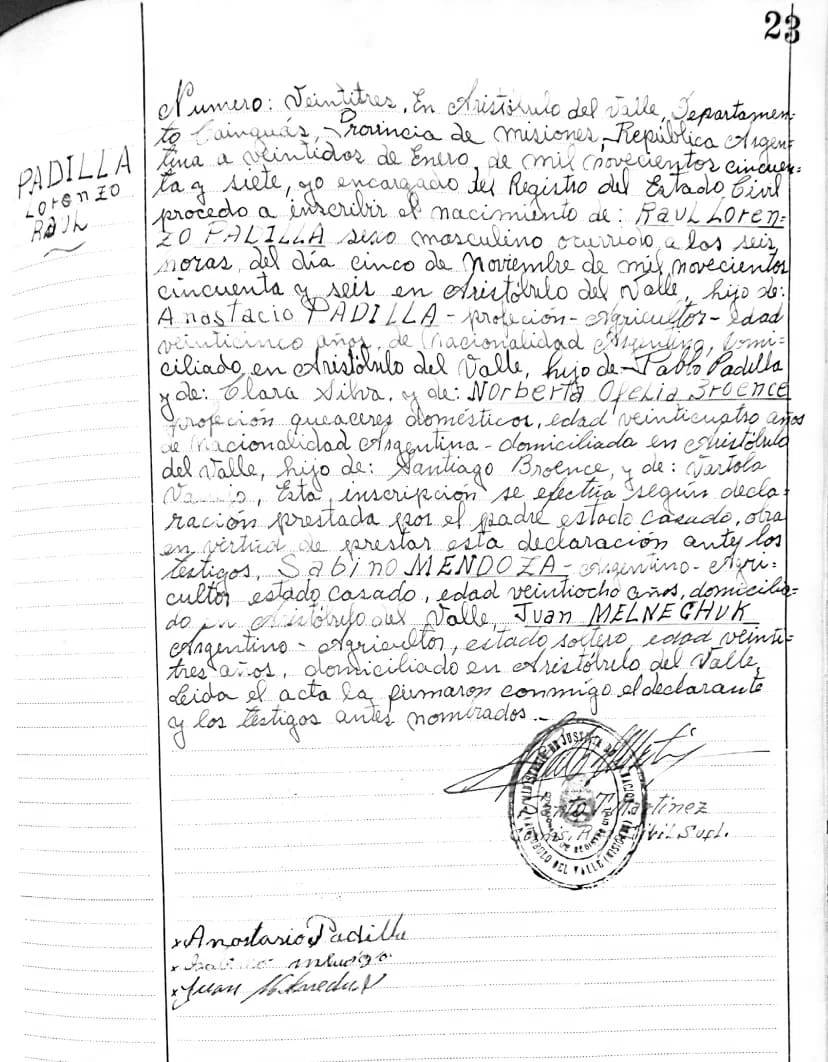 23
PADILLA
Lorenzo
RAUL
Numero: Veintitres, En Aristóbulo del Valle, Departamen-
to Cainguás, Provincia de Misiones, República Argen-
tina a veintidos de Enero, de mil novecientos cincuen-
ta y siete, yo encargado del Registro del Estado Civil
procedo a inscribir el nacimiento de: RAUL LOREN=
ZO PADILLA sexo masculino ocurrido, a las seis
horas, del día cinco de Noviembre de mil novecientos
cincuenta y seis en Aristóbulo del Valle, hijo de:
Anastacio PADILLA - profeción - Agricultor - edad
veinticinco años, de Nacionalidad Argentino, domi=
ciliado en Aristóbulo del Valle, hijo de - Pablo Padilla
y de: Clara Silva, y de: Norberta Ofelia Broence
profeción queaceres domésticos, edad veinticuatro años
de Nacionalidad Argentina - domiciliada en Aristóbulo
del Valle, hijo de: Santiago Broence, y de: Vartola
Esta inscripción se efectúa según decla=
ración prestada por el padre estado casado, obra
en virtud de prestar esta declaración ante los
testigos, Sabino MENDOZA - Argentino - Agri=
cultor estado casado, edad veintiocho años, domicilia=
do en Aristóbulo del Valle, Juan MELNECHUK
Argentino - Agricultor, estado soltero, edad veinti=
tres años, domiciliado en Aristóbulo del Valle,
Leida el acta la firmaron conmigo el declarante
y los testigos antes nombrados.-
MINISTERIO DE JUSTICIA DE LA NACION
ARISTOBULO DEL VALLE (MISIONES)
Civil Supl.
x Anastacio Padilla
x
x Juan